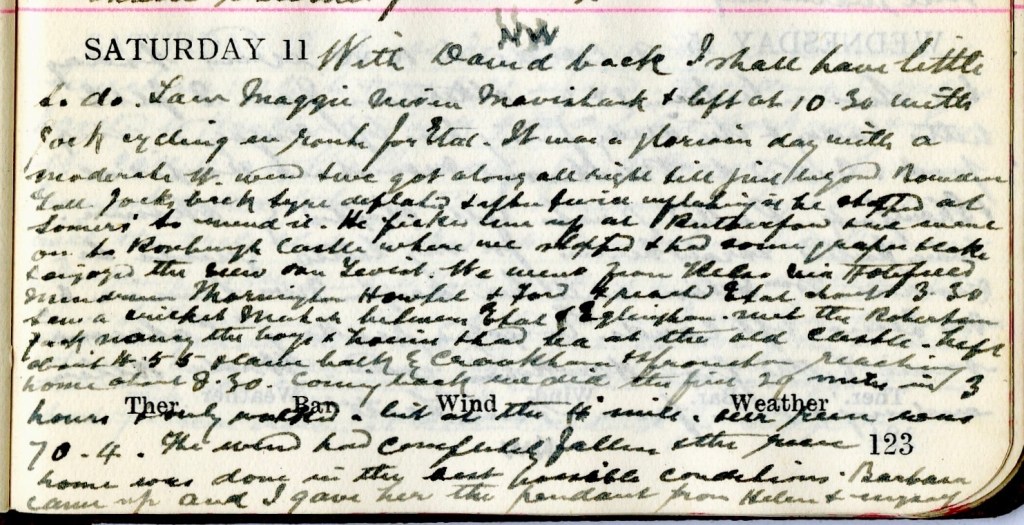 NW
SATURDAY 11 With David back I shall have little
to do. Saw Maggie & left at 10.30 with
Jock cycling en route for Etal. It was a glorious day with a
moderate W. wind & we got along all right till just beyond Bowden
Jock's back tyre deflated & after twice inflating it he stopped at
Somers' to mend it. He picked me up at Rutherford & we went
on to Roxburgh Castle where we stopped & had some grapes & cake
& enjoyed the view over Teviot. We went from Kelso via
Mindrum Mornington Howtel & Ford & reached Etal about 3.30
Saw a cricket match between Etal & Eglingham. met the Robertsons
Jock Nancy the boys & & had tea at the old Castle. Left
about 4.55 & came back by Crookham & Sprouston reaching
home about 8.30. Coming back we did the first 29 miles in 3
Ther. Bar. Wind Weather
hours & only walked a bit at the mile. our run was
70.4. The wind had completely fallen & the run 123
home was done in the best possible conditions. Barbara
came up and I gave her the pendant from Helen & myself